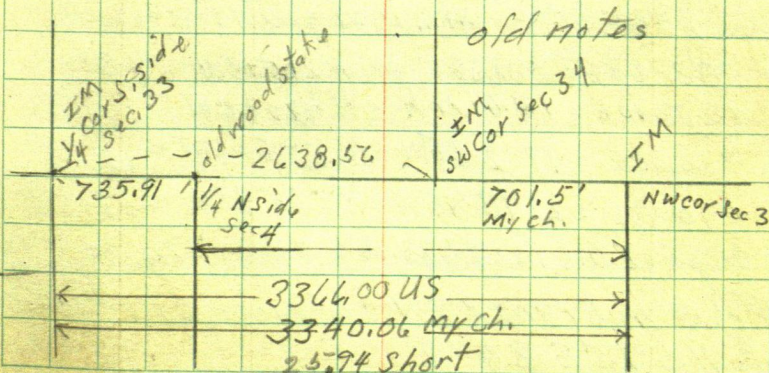 old notes
IM
1/4 Cor S. side
sec. 33
old wood stake
IM
SW Cor sec 34
IM
2638.56
735.91
1/4 N side
sec 4
701.5'
My ch.
NW cor sec 3
3366.00 US
3340.06 My Ch.
25.94 short